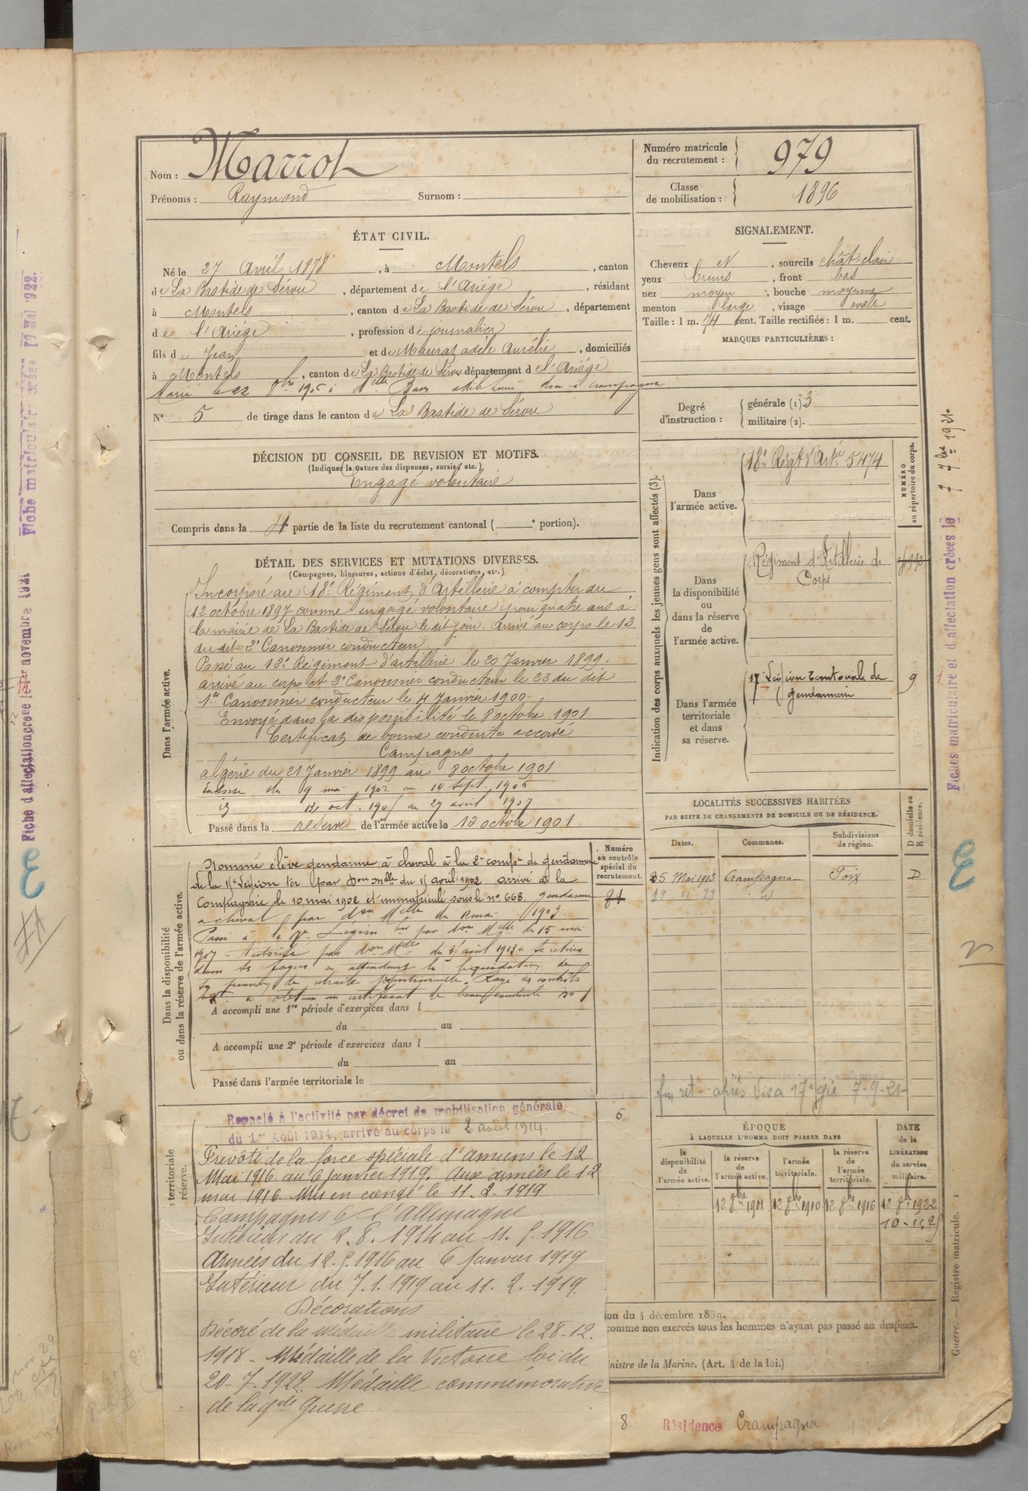 Nom : Marrot
Prénoms : Raymond Surnom :
Numéro matricule du recrutement : 979
Classe de mobilisation : 1896
ÉTAT CIVIL.
Né le 27 Avril 1878, à Montels, canton
de La Bastide de Sérou, département de l'Ariège, résidant
à Montels, canton de La Bastide de Sérou, département
de l'Ariège, profession de journalier
fils de Jean et de Maurat adèle Aurélie, domiciliés
à Montels, canton de La Bastide de Sérou département de l'Ariège
Marié le 22 8bre 1905 à Melle
N° 5 de tirage dans le canton de La Bastide de Sérou
SIGNALEMENT.
Cheveux N, sourcils chât. clair
yeux bruns, front bas
nez moyen, bouche moyenne
menton large, visage ovale
Taille : 1 m. 74 cent. Taille rectifiée : 1 m. cent.
MARQUES PARTICULIÈRES :
Degré d'instruction : générale (1) 3
militaire (2).
DÉCISION DU CONSEIL DE REVISION ET MOTIFS.
(Indiquer la nature des dispenses, sursis, etc.)
Engagé volontaire
Compris dans la 4 partie de la liste du recrutement cantonal ( e portion).
DÉTAIL DES SERVICES ET MUTATIONS DIVERSES.
(Campagnes, blessures, actions d'éclat, décorations, etc.)
Dans l'armée active.
Incorporé au 18e Régiment d'Artillerie à compter du
12 octobre 1897 comme engagé volontaire pour quatre ans à
la mairie de La Bastide de Sérou le dit jour. Arrivé au corps le 13
du dit 2e Canonnier conducteur.
Passé au 12e Régiment d'artillerie le 20 Janvier 1899.
arrivé au corps et 2e Canonnier conducteur le 23 du dit
1er Canonnier conducteur le 4 Janvier 1900.
Envoyé dans la disponibilité le 8 octobre 1901
Certificat de bonne conduite accordé
Campagnes
Algérie du 21 Janvier 1899 au 8 octobre 1901
du 9 mai 1902 au 14 sept. 1905
oct. 1905 au 29 août 1907
Passé dans la réserve de l'armée active le 13 octobre 1901
Indication des corps auxquels les jeunes gens sont affectés (3).
NUMÉRO au répertoire du corps.
Dans l'armée active.
18e Régt d'Artie 5474
Dans la disponibilité ou dans la réserve de l'armée active.
Régiment d'Artillerie de Corps
Dans l'armée territoriale et dans sa réserve.
17e Légion territoriale de gendarmerie 9
Dans la disponibilité ou dans la réserve de l'armée active.
Nommé élève gendarme à cheval à la 2e compie de gendarmerie
de la légion par Don Mlle du 11 avril 1902 arrivé à la
Compagnie le 10 mai 1902 et immatriculé sous le n° 668. gendarme
à cheval par don Melle du 1903.
Passé à la 17e Légion par don Melle du 15 mai
1907 - Autorisé par don Melle du 3 août 1913 à se retirer
dans ses foyers en attendant la liquidation de
sa pension de retraite proportionnelle. Rayé des contrôles
Numéro au contrôle spécial du recrutement.
A accompli une 1re période d'exercices dans l
du au
A accompli une 2e période d'exercices dans l
du au
Passé dans l'armée territoriale le
LOCALITÉS SUCCESSIVES HABITÉES
PAR SUITE DE CHANGEMENTS DE DOMICILE OU DE RÉSIDENCE.
Dates. Communes. Subdivisions de région. D domicile ou R résidence.
25 Mai 1913 Crampagna Foix D
après visa 17e 7-9-21
territoriale réserve.
Rappelé à l'activité par décret de mobilisation générale
du 1er Août 1914, arrivé au corps le 2 août 1914.
Prévôté de la force spéciale d'Amiens le 12
Mai 1916 au 6 Janvier 1919. Aux armées le 12
mai 1916. Mis en congé le 11.2.1919
Campagnes c/ l'Allemagne
Intérieur du 2.8.1914 au 11.5.1916
Armées du 12.5.1916 au 6 Janvier 1919
Intérieur du 7.1.1919 au 11.2.1919.
Décorations
Décoré de la médaille militaire le 28.12.
1918 - Médaille de la Victoire loi du
20-7-1922. Médaille commémorative
de la gde Guerre
6
ÉPOQUE
À LAQUELLE L'HOMME DOIT PASSER DANS
la disponibilité de l'armée active. la réserve de l'armée active. l'armée territoriale. la réserve de l'armée territoriale.
DATE de la LIBÉRATION du service militaire.
12 8bre 1901 12 8bre 1910 12 8bre 1916 12 8bre 1922
ion du 4 décembre 1889.
comme non exercés tous les hommes n'ayant pas passé au drapeau.
nistre de la Marine. (Art. 4 de la loi.)
8 Résidence Crampagna
Guerre. Registre matricule. 1
Fiches matriculaire et d'affectation créées le 7 7bre 1921.
Fiche d'affectation créée le 1er novembre 1921
Fiche matriculaire créée Mai 1922.